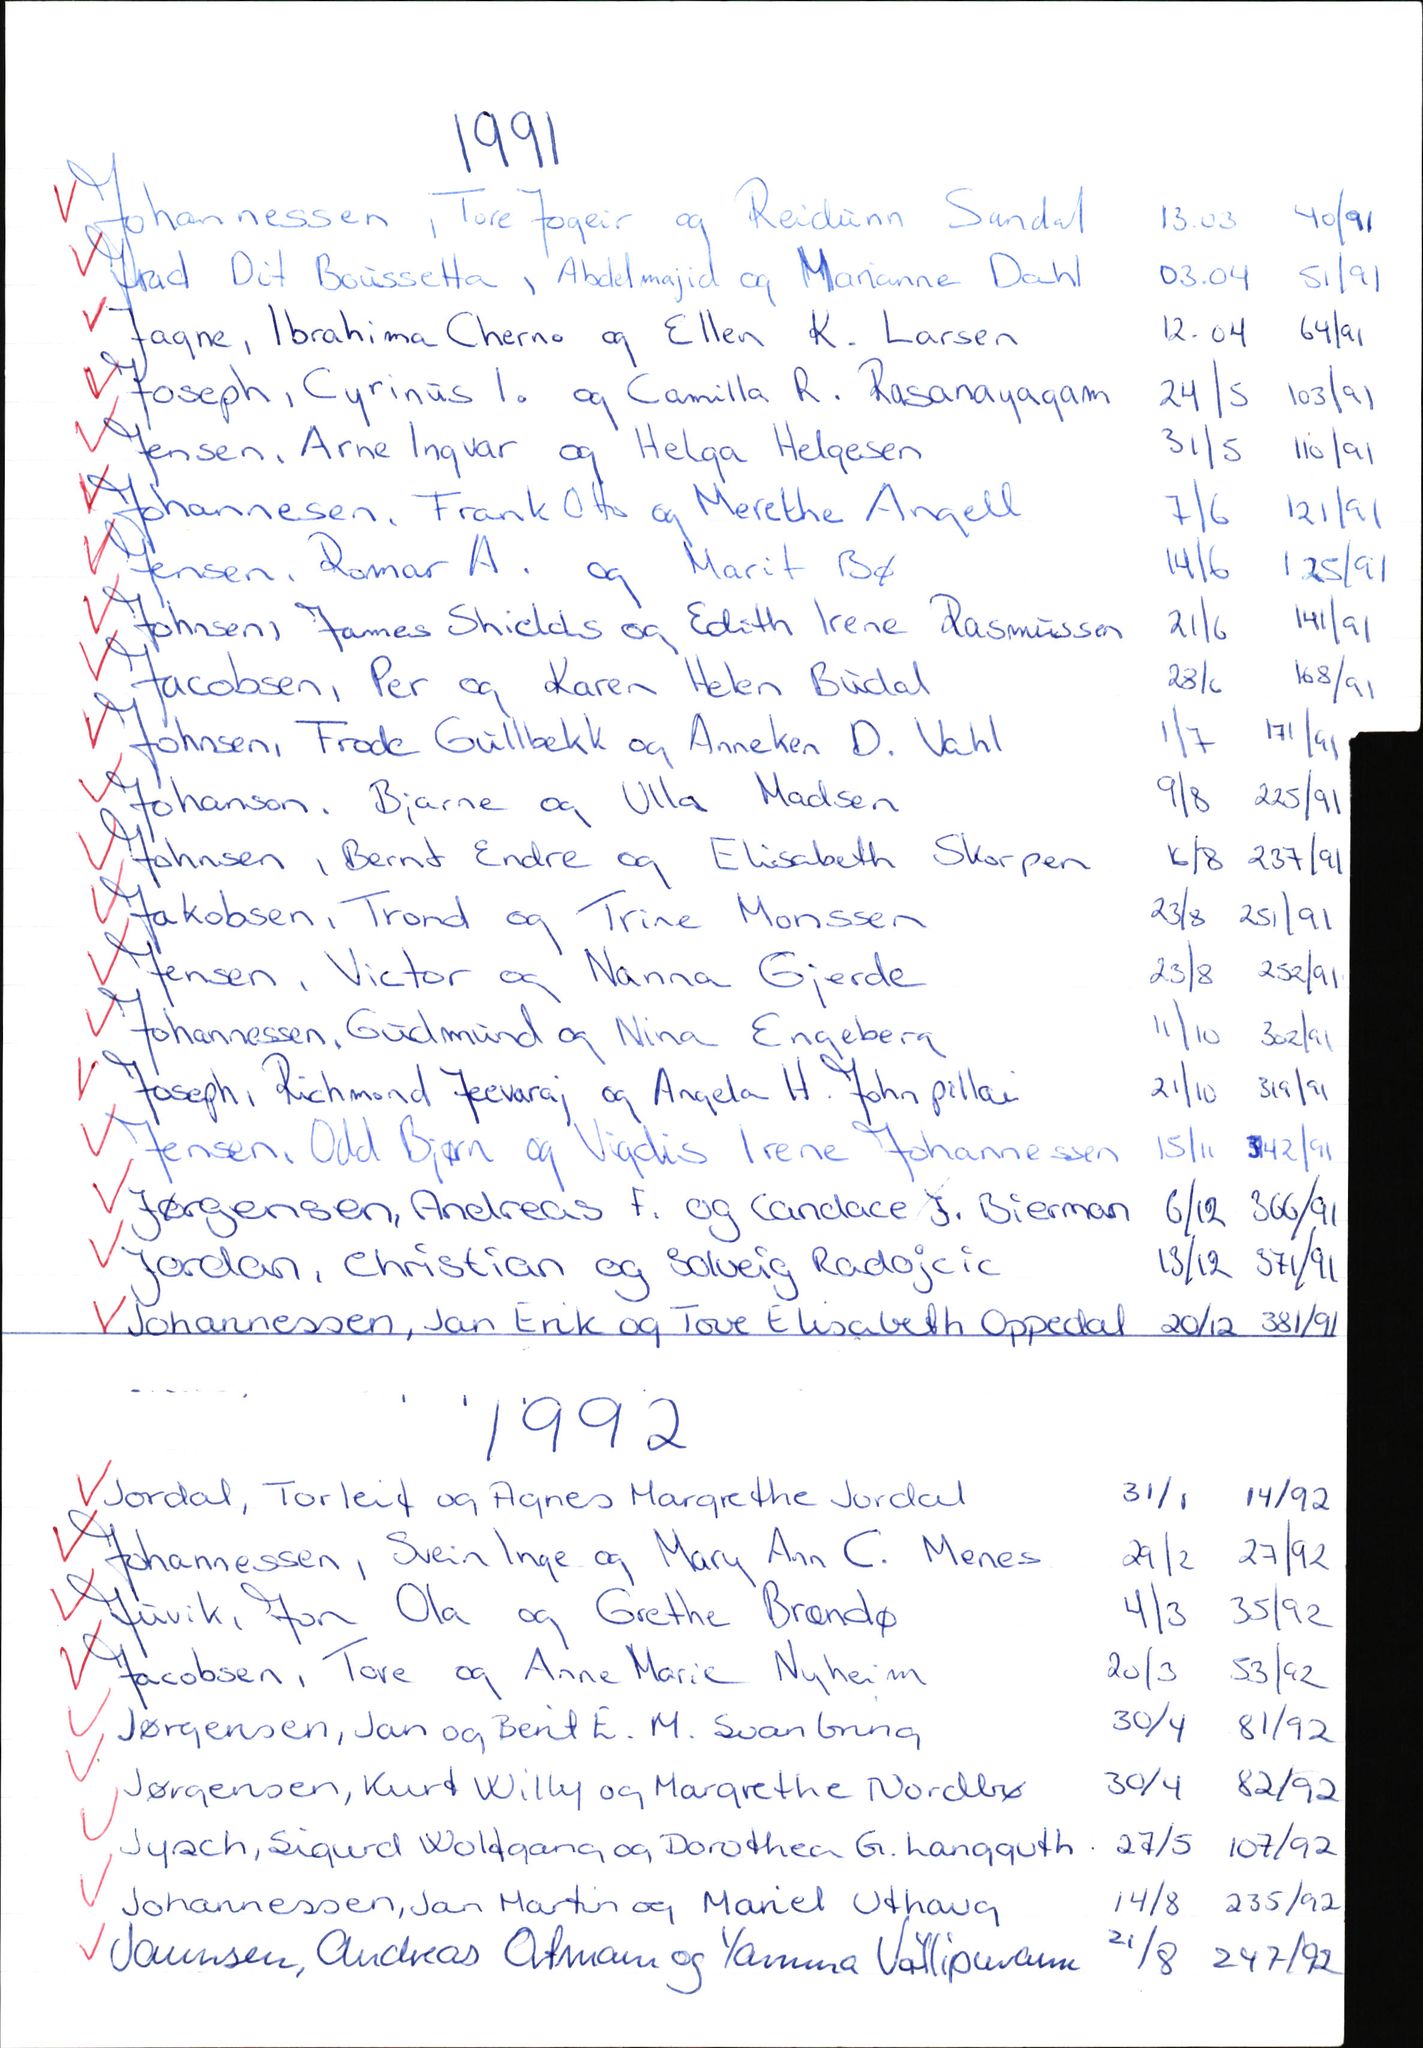 1991
Johannessen, Tore Jogeir og Reidunn Sandal 13.03 40/91
Jrad Dit Boussetta, Abdelmajid og Marianne Dahl 03.04 51/91
Jagne, Ibrahima Cherno og Ellen K. Larsen 12.04 64/91
Joseph, Cyrinus I. og Camilla R. Rasanayagam 24/5 103/91
Jensen, Arne Ingvar og Helga Helgesen 31/5 110/91
Johannesen, Frank Otto og Merethe Angell 7/6 121/91
Jensen, Romar A. og Marit Bø 14/6 125/91
Johnsen, James Shields og Edith Irene Rasmussen 21/6 141/91
Jacobsen, Per og Karen Helen Budal 28/6 168/91
Johnsen, Frode Gullbekk og Anneken D. Vahl 1/7 171/91
Johanson, Bjarne og Ulla Madsen 9/8 225/91
Johnsen, Bernt Endre og Elisabeth Skorpen 16/8 237/91
Jakobsen, Trond og Trine Monssen 23/8 251/91
Jensen, Victor og Nanna Gjerde 23/8 252/91
Johannessen, Gudmund og Nina Engeberg 11/10 302/91
Joseph, Richmond Jeevaraj og Angela H. Johnpillai 21/10 319/91
Jensen, Odd Bjørn og Vigdis Irene Johannessen 15/11 342/91
Jørgensen, Andreas F. og Candace J. Bierman 6/12 366/91
Jordan, Christian og Solveig Radojcic 13/12 371/91
Johannessen, Jan Erik og Tove Elisabeth Oppedal 20/12 381/91
1992
Jordal, Torleif og Agnes Margrethe Jordal 31/1 14/92
Johannessen, Svein Inge og Mary Ann C. Menes 29/2 27/92
Juvik, Jon Ola og Grethe Brandø 4/3 35/92
Jacobsen, Tore og Anne Marie Nyheim 20/3 53/92
Jørgensen, Jan og Berit E. M. Svanbring 30/4 81/92
Jørgensen, Kurt Willy og Margrethe Nordbø 30/4 82/92
Jysch, Sigurd Wolfgang og Dorothea G. Langguth. 27/5 107/92
Johannessen, Jan Martin og Mariel Uthaug 14/8 235/92
Andreas og Yamuna Vallipuram 21/8 247/92